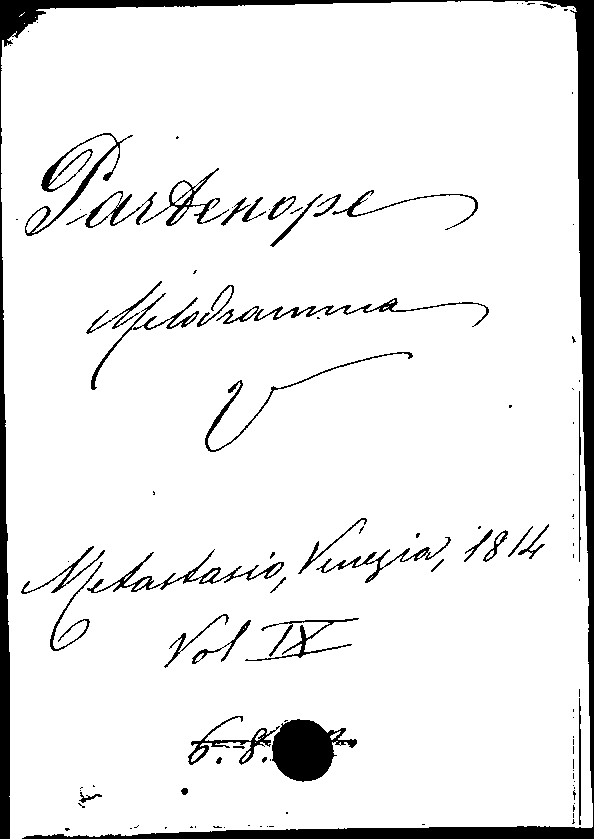 Partenope
Melodramma
V
Metastasio, Venezia, 1814
Vol IX
6. 8.